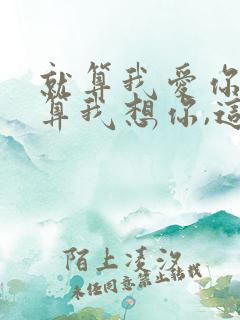 就算我愛你
算我想你,這
陌上凌汐
未经同意禁止转载